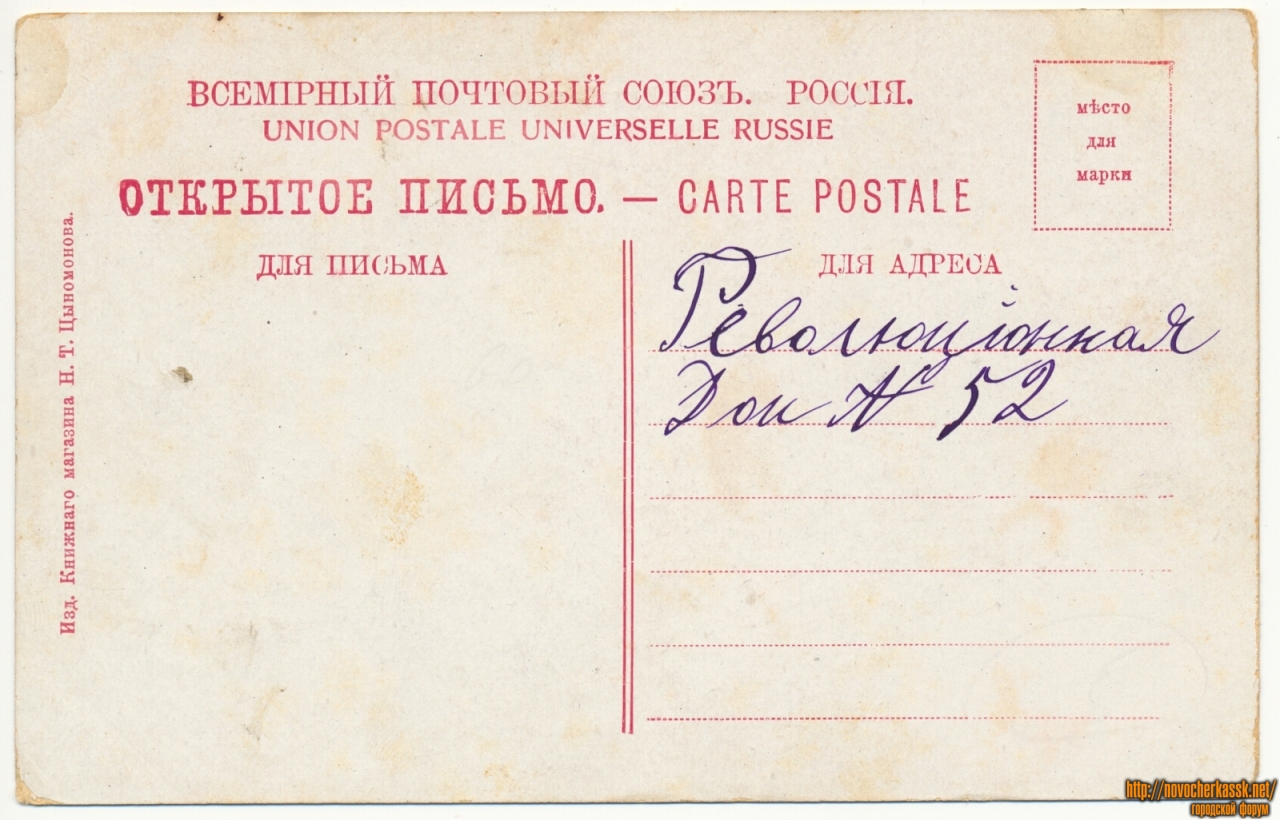 ВСЕМІРНЫЙ ПОЧТОВЫЙ СОЮЗЪ. РОССІЯ.
UNION POSTALE UNIVERSELLE RUSSIE
ОТКРЫТОЕ ПИСЬМО. — CARTE POSTALE
мѣсто
для
марки
ДЛЯ ПИСЬМА
ДЛЯ АДРЕСА
Революціонная
Дом N 52
Изд. Книжнаго магазина Н. Т. Цыномонова.
http://novocherkassk.net/
городской форум